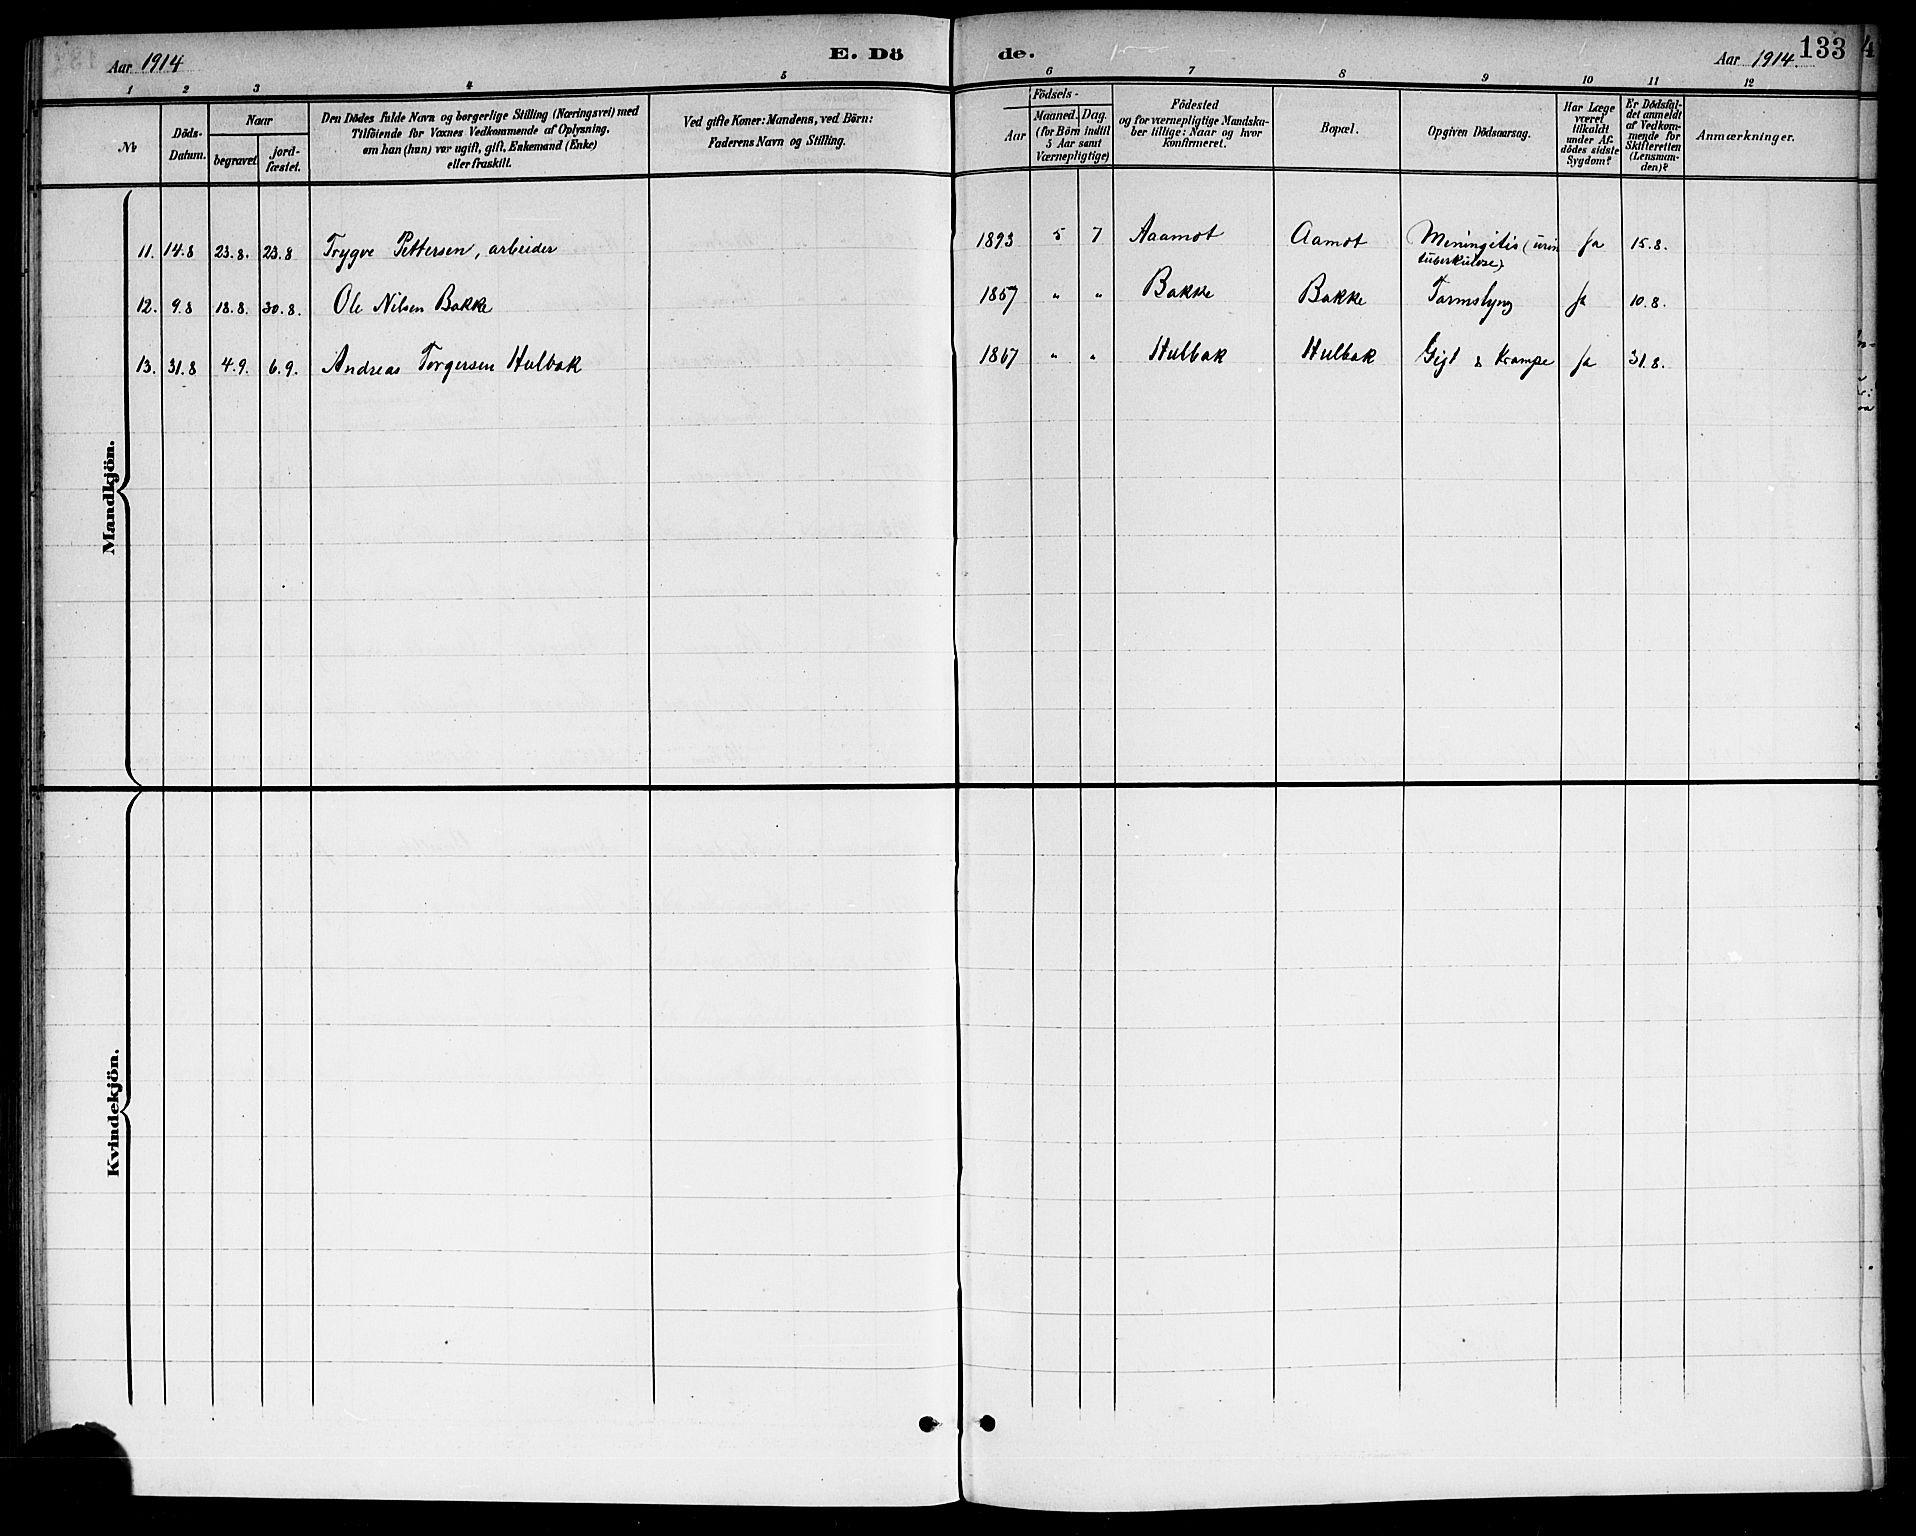 Aar 1914
E. Dö
de.
Aar 1914.
133
4
1 2 3 4 5 6 7 8 9 10 11 12
No
Döds-
Datum.
Naar
begravet
jord-
fæstet.
Den Dödes fulde Navn og borgerlige Stilling (Næringsvei) med
Tilföiende for Voxnes Vedkommende af Oplysning,
om han (hun) var ugift, gift, Enkemand (Enke)
eller fraskilt.
Ved gifte Koner: Mandens, ved Börn:
Faderens Navn og Stilling.
Födsels-
Aar
Maaned. Dag.
(for Börn indtil
5 Aar samt
Værnepligtige)
Födested
og for værnepligtige Mandska-
ber tillige: Naar og hvor
konfirmeret.
Bopæl.
Opgiven Dödsaarsag.
Har Læge
været
tilkaldt
under Af-
dödes sidste
Sygdom?
Er Dödsfal-
det anmeldt
af Vedkom-
mende for
Skifteretten
(Lensman-
den)?
Anmærkninger.
Mandkjön.
11. 14.8 23.8. 23.8 Trygve Pettersen, arbeider 1893 5 7 Aaamot Aamot Meningitis (urin Ja 15.8.
tuberkulose)
12. 9.8 18.8. 30.8. Ole Nilsen Bakke 1857 " " Bakke Bakke Tarmslyng Ja 10.8.
13. 31.8 4.9. 6.9. Andreas Torgersen Hulbak 1867 " " Hulbak Hulbak Gigt & Krampe Ja 31.8.
Kvindekjön.